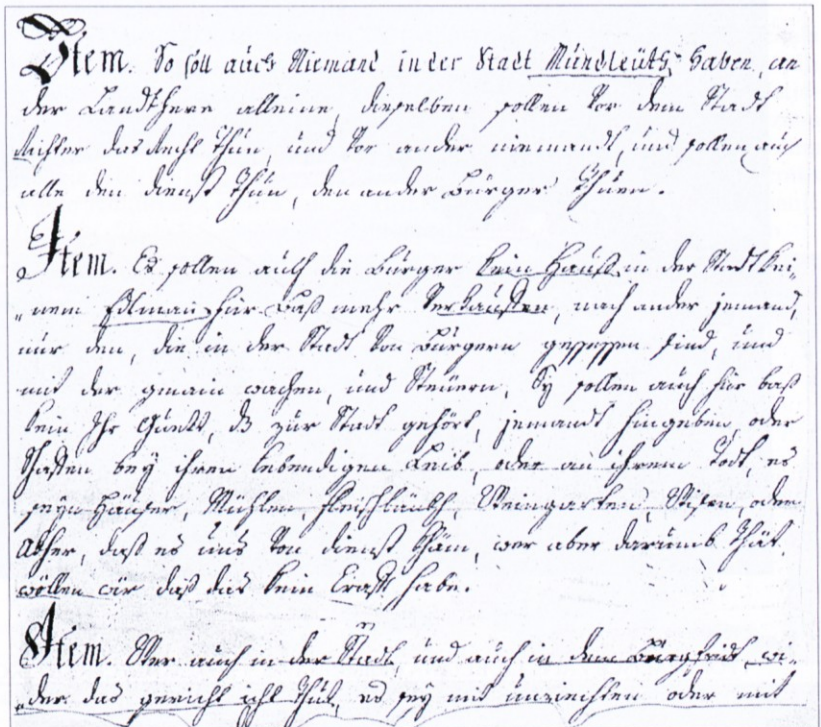 Item. So soll auch Niemand in der Stadt Mundleüth, haben, an
der Landtherr alleine, dieselben sollen vor dem Stadt
Richter das Recht thun, und vor ander niemandt, und sollen auch
alle den dienst thun, den ander Bürger thuen.
Item. Es sollen auch die Bürger kein Hauß in der Stadt kei„
„nem Edlman für baß mehr verkauffen, noch ander jemand,
nur den, die in der Stadt von Bürgern gesessen sind, und
mit der gmain wachen, und Steüern, Sy sollen auch für baß
kein Ihr Guett, dz zur Stadt gehört, jemandt hingeben, oder
schaffen bey ihren lebendigen Leib, oder an ihrem Todt, es
seyn Häuser, Mühlen, fleischbänkh, Weingarten, Wisen, oder
Akher, daß es uns von dienst khäm, wer aber darumb thät
wöllen wür daß das kein Crafft habe.
Item. Wer auch in der Stadt, und auch in dem Burgfridt wi„
„der das gericht icht thut, es sey mit unzuchten oder mit